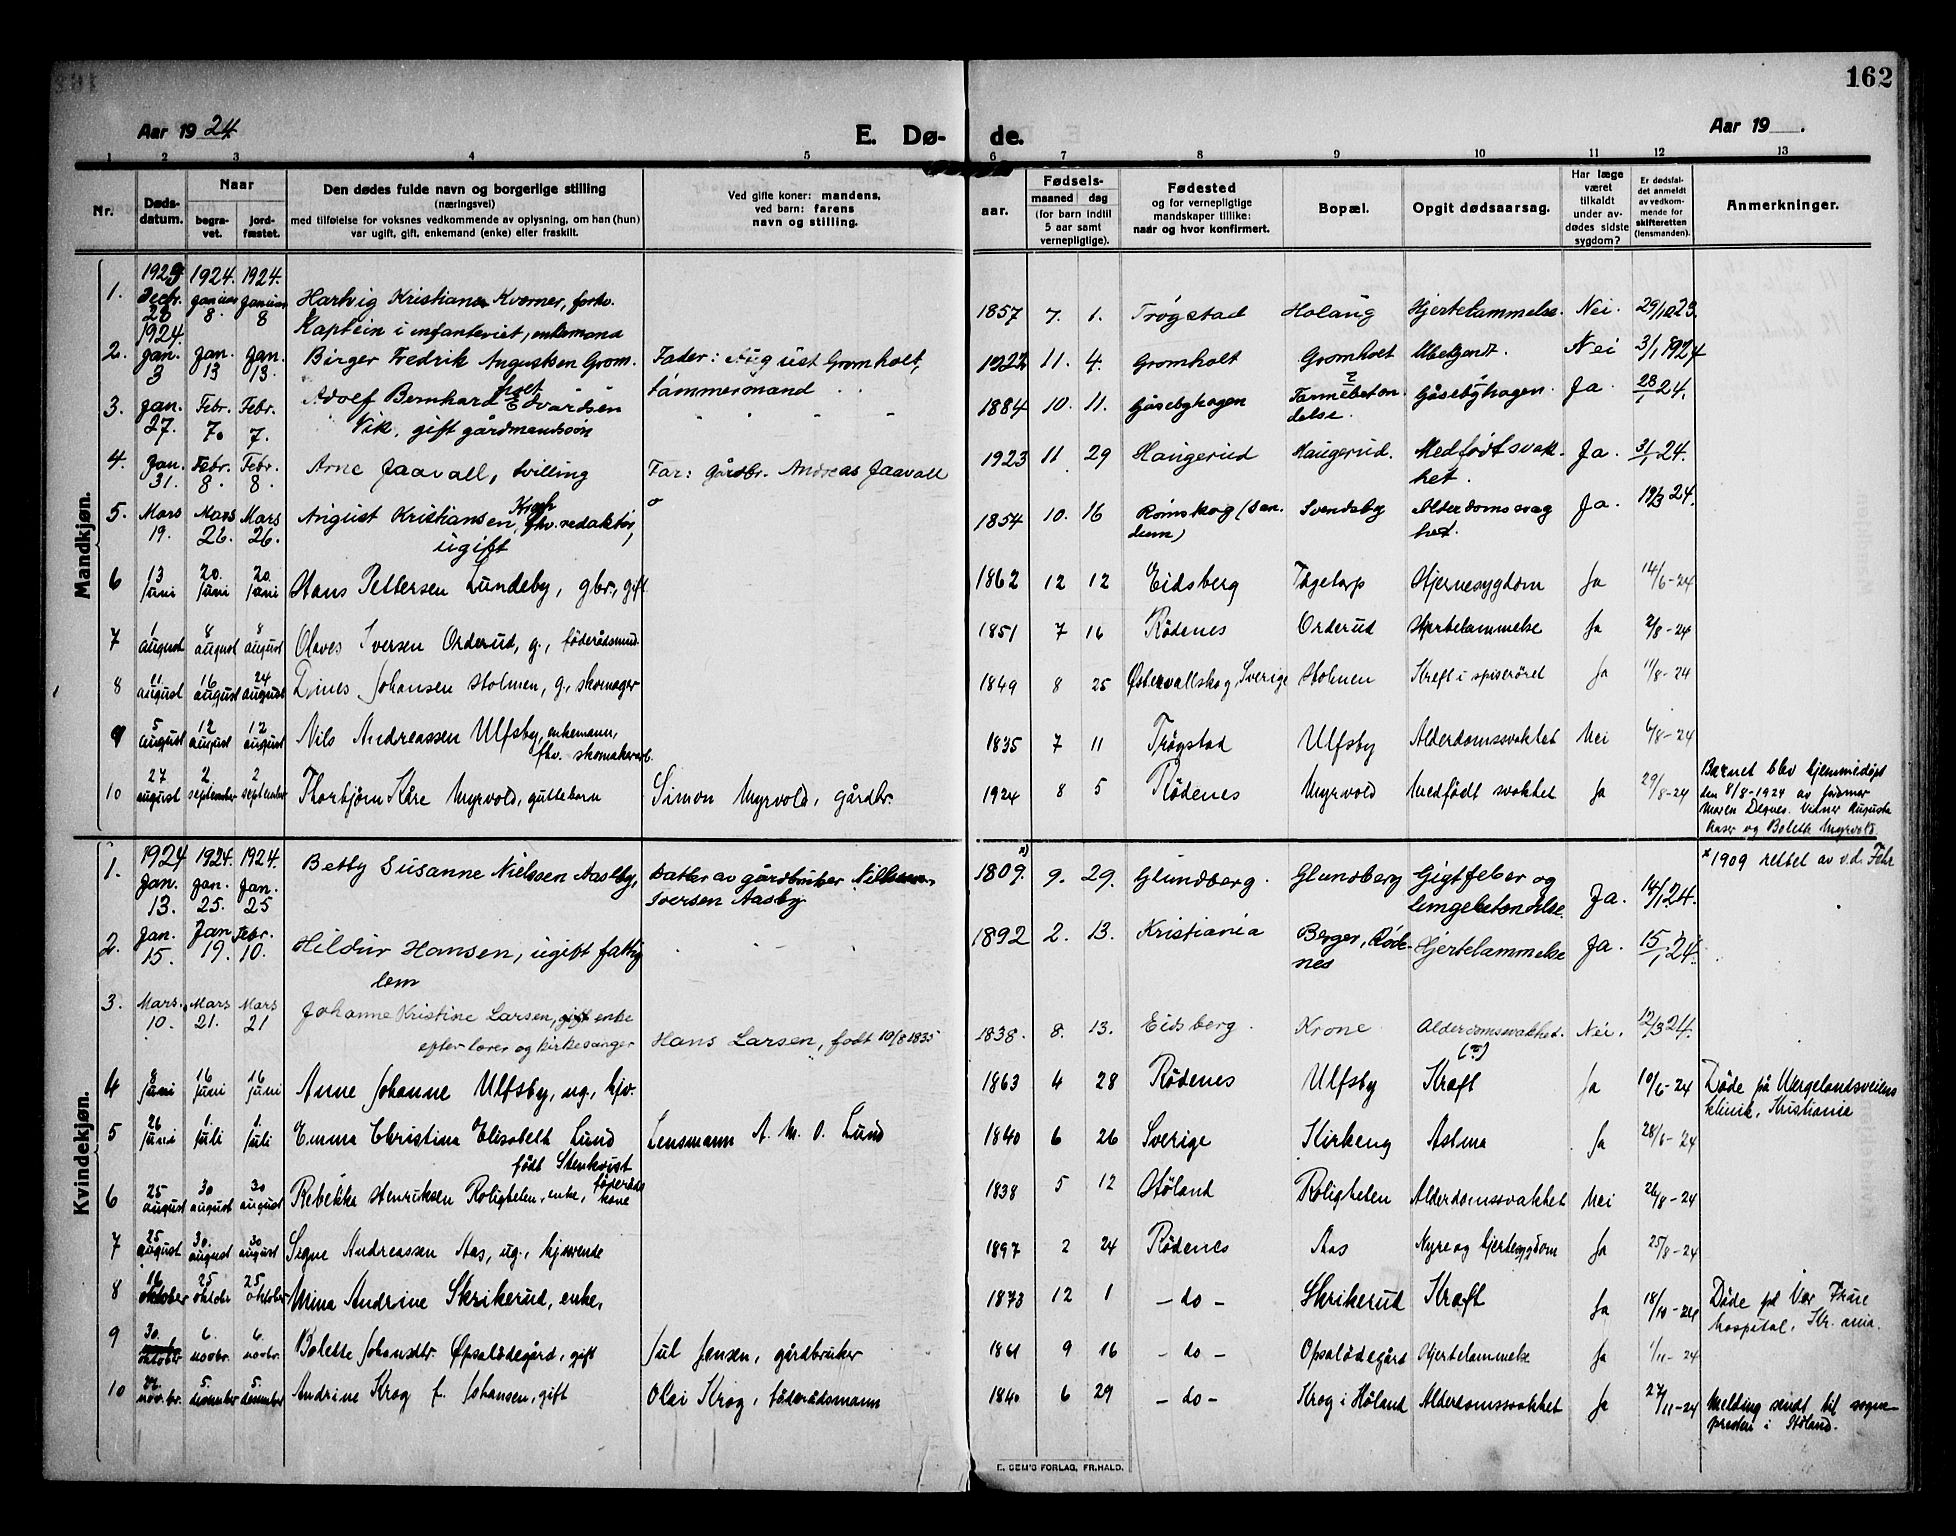 162
Aar 1924
E. Dø- de.
Aar 19 .
1 2 3 4 5 6 7 8 9 10 11 12 13
Nr.
Døds-datum.
Naar
begra-vet.
jord-fæstet.
Den dødes fulde navn og borgerlige stilling
(næringsvei)
med tilføielse for voksnes vedkommende av oplysning, om han (hun)
var ugift, gift, enkemand (enke) eller fraskilt.
Ved gifte koner: mandens,
ved barn: farens
navn og stilling.
Fødsels-
aar.
maaned
dag
(for barn indtil
5 aar samt
vernepligtige).
Fødested
og for vernepligtige
mandskaper tillike:
naar og hvor konfirmert.
Bopæl.
Opgit dødsaarsag.
Har læge
været
tilkaldt
under av-
dødes sidste
sygdom?
Er dødsfal-
det anmeldt
av vedkom-
mende for
skifteretten
(lensmanden).
Anmerkninger.
Mandkjøn.
1. 1923 Decbr. 28 1924. januar 8. 1924. januar 8 Hartvig Kristian Kværner, forhv. Kaptein i infanteriet, enkemand 1857 7. 1. Trøgstad Holaug Hjertelammelse. Nei. 29/12 23.
2. 1924. Jan. 3 Jan. 13 Jan. 13. Birger Fredrik Augustsen Gromholt Fader: August Gromholt, tømmermand 1922 11. 4. Gromholt Gromholt Ubekjendt. Nei 3/1 1924
3. Jan. 27. Febr. 7. Febr. 7. Adolf Bernhard Edvardsen Vik, gift gårdmandssøn 1884 10. 11. Gåsebyhagen Tarmebetændelse. Gåsebyhagen. Ja 28/1 24.
4. Jan. 31. Febr. 8. Febr. 8. Arne Jaavall, tvilling Far: Gårdbr. Andreas Jaavall 1923 11 29 Haugerud Haugerud. Medfødt svakhet. Ja. 31/1 24.
5. Mars 19. Mars 26. Mars 26. August Kristiansen Krogh, fhv. redaktør, ugift 1854 10. 16 Rømskog (Sandum) Svendsby Alderdomssvaghet. Ja. 19/3 24.
6 13 juni 20. juni 20. juni Hans Pettersen Lundeby, gbr., gift 1862 12 12 Eidsberg Tagetorp Hjernesygdom Ja 14/6-24
7 1 august 8 august 8 august Olaves Iversen Orderud, g., føderådsmnd. 1851 7 16 Rødenes Orderud Hjertelammelse Ja 2/8-24
8 11 august 16 august 24 august Dines Johansen Holmen, g., skomager 1849 8 25 Østervallskog, Sverige Holmen Kræft i spiserøret Ja 11/8-24
9 5 august 12 august 12 august Nils Andreassen Ulfsby, enkemann, fhv. skomakerarb. 1835 7 11 Trøgstad Ulfsby Alderdomssvakhet Nei 6/8-24
10 27 august 2 september 2 september Thorbjørn Kåre Myrvold, guttebarn Simon Myrvold, gårdbr. 1924 8 5 Rødenes Myrvold Medfødt svakhet Ja 29/8-24 Barnet blev hjemmedøpt den 8/8-1924 av jordmor Maren Degnes. Vidner Augusta Aaser og Bolette Myrvold
Kvindekjøn.
1. 1924 Jan. 13. 1924. Jan. 25. 1924. Jan. 25 Betty Susanne Nielssen Aasby, Datter av gårdbruker Nils Iversen Aasby 1809. x) 9. 29. Glundberg. Glundberg Gigtfeber og lungebetændelse. Ja. 14/1 24. x 1909 rettet av v.d. Fehr
2. Jan. 15. Jan. 19. Febr. 10. Hildur Hansen, ugift fattiglem 1892 2. 13. Kristiania Berger, Rødenes Hjertelammelse Ja. 15/1 24.
3. Mars. 10. Mars 21. Mars 21 Johanne Kristine Larsen, gift enke efter lærer og kirkesanger Hans Larsen, født 10/8 1835 1838. 8. 13. Eidsberg. Krone Alderdomssvakhet. Nei. 12/3 24.
4 8 juni 16 juni 16 juni Anne Johanne Ulfsby, ug., hjv. 1863 4 28 Rødenes Ulfsby Kræft Ja 10/6-24 Døde på Wergelandsveiens klinik, Kristiania
5 26 juni 1. juli 1. juli Emma Christina Elisabeth Lund født Stenkvist Lensmann A. M. O. Lund 1840 6 26 Sverige Kirkeng Astma Ja 28/6-24
6 25 august 30 august 30 august Rebekka Henriksen Roligheten, enke, føderådskone 1838 5 12 Høland Roligheten Alderdomssvakhet Nei 26/8-24
7 25 august 30. august 30 august Signe Andreassen Aas, ug., hjemmeværende 1897 2 24 Rødenes Aas Nyre og hjertesygdom Ja 25/8-24
8 16 oktober 25 oktobr 25 oktober Mina Andrine Skrikerud, enke, 1873 12 1 -do- Skrikerud Kræft Ja 18/10-24 Døde på Vor Frue hospital, Kr.ania.
9 30. oktober 6. novbr. 6. novbr. Bolette Johansdtr. Opsalødegård, gift Jul Jensen, gårdbruker 1861 9 16 -do- Opsalødegård Hjertelammelse Ja 1/11-24
10 novbr. 5. desember 5. desember Andrine Krog f. Johansen, gift Olai Krog, føderådsmann 1840 6 29 -do- Krog i Høland Alderdomssvakhet Ja 27/11-24 Melding sendt til sognepresten i Høland.
E. SEM'S FORLAG, FR.HALD.